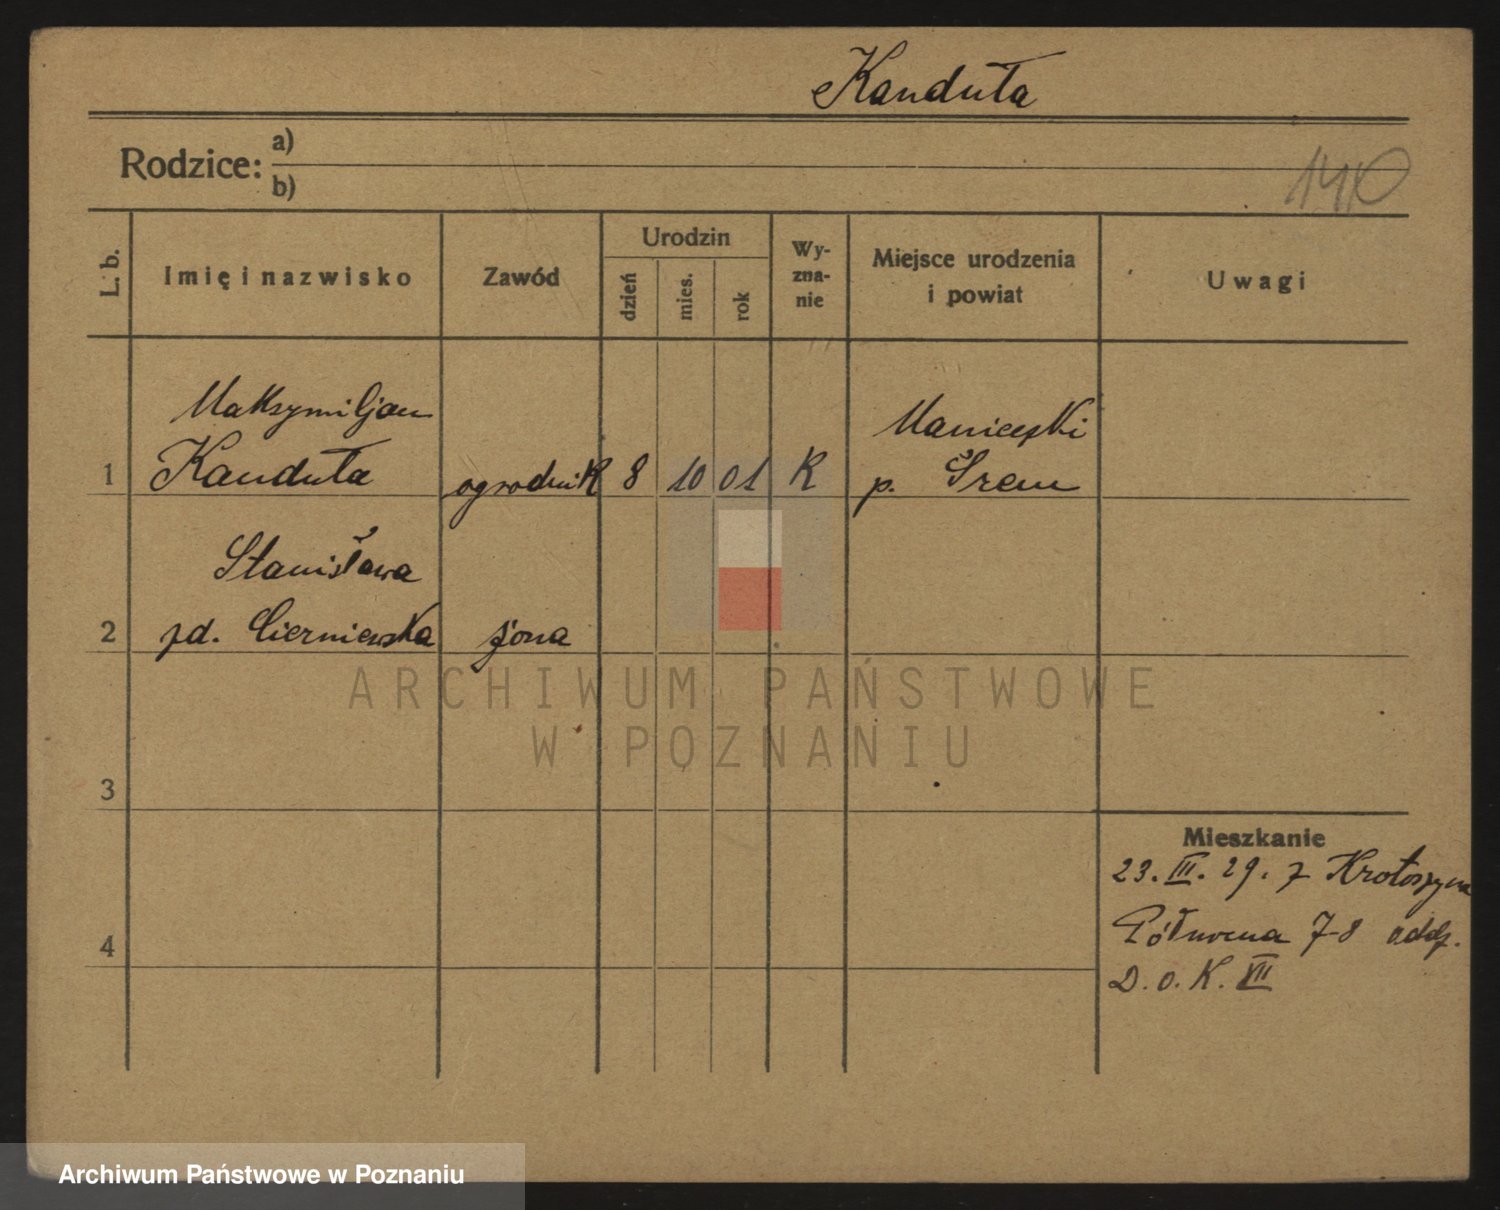 Kanduła
Rodzice: a)
b)
140
L. b.
Imię i nazwisko
Zawód
Urodzin
dzień
mies.
rok
Wy-
zna-
nie
Miejsce urodzenia
i powiat
Uwagi
Maksymiljan
1 Kanduła ogrodnik 8 10 01 K
Manieczki
p. Śrem
Stanisława
2 zd. Cierniewska żona
ARCHIWUM PAŃSTWOWE
W POZNANIU
3
4
Mieszkanie
23. III. 29. z Krotoszyna
Półwezna 7-8 oddz.
D. O. K. VII
Archiwum Państwowe w Poznaniu